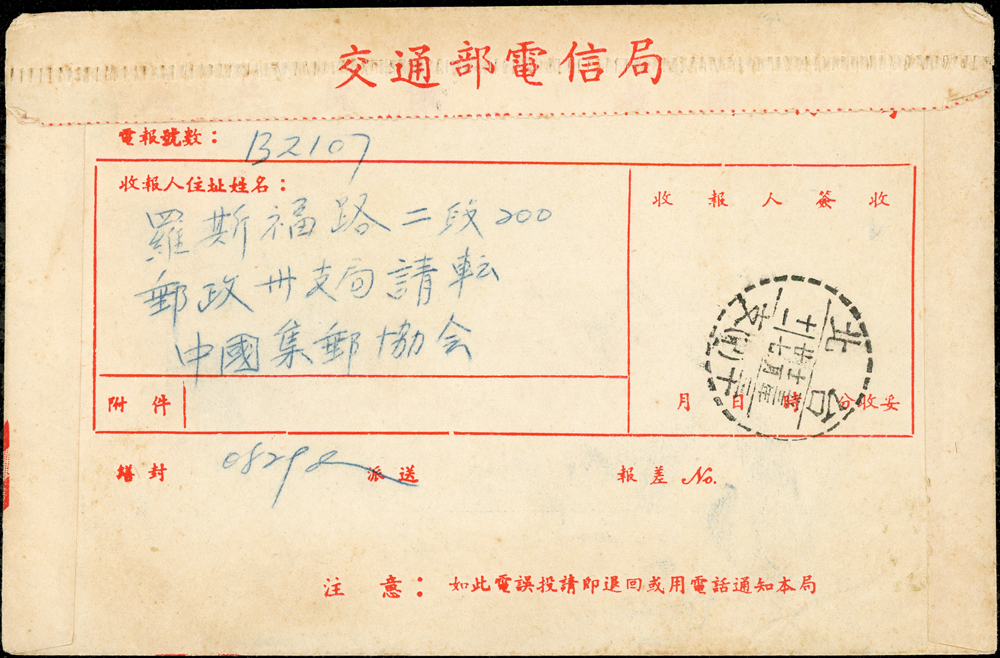 交通部電信局
電報號數：B2107
收報人住址姓名：
羅斯福路二段200
郵政卅支局請転
中國集郵協会
收報人簽收
附件
月日時分收妥
繕封 派送 報差 No.
注意：如此電誤投請即退回或用電話通知本局